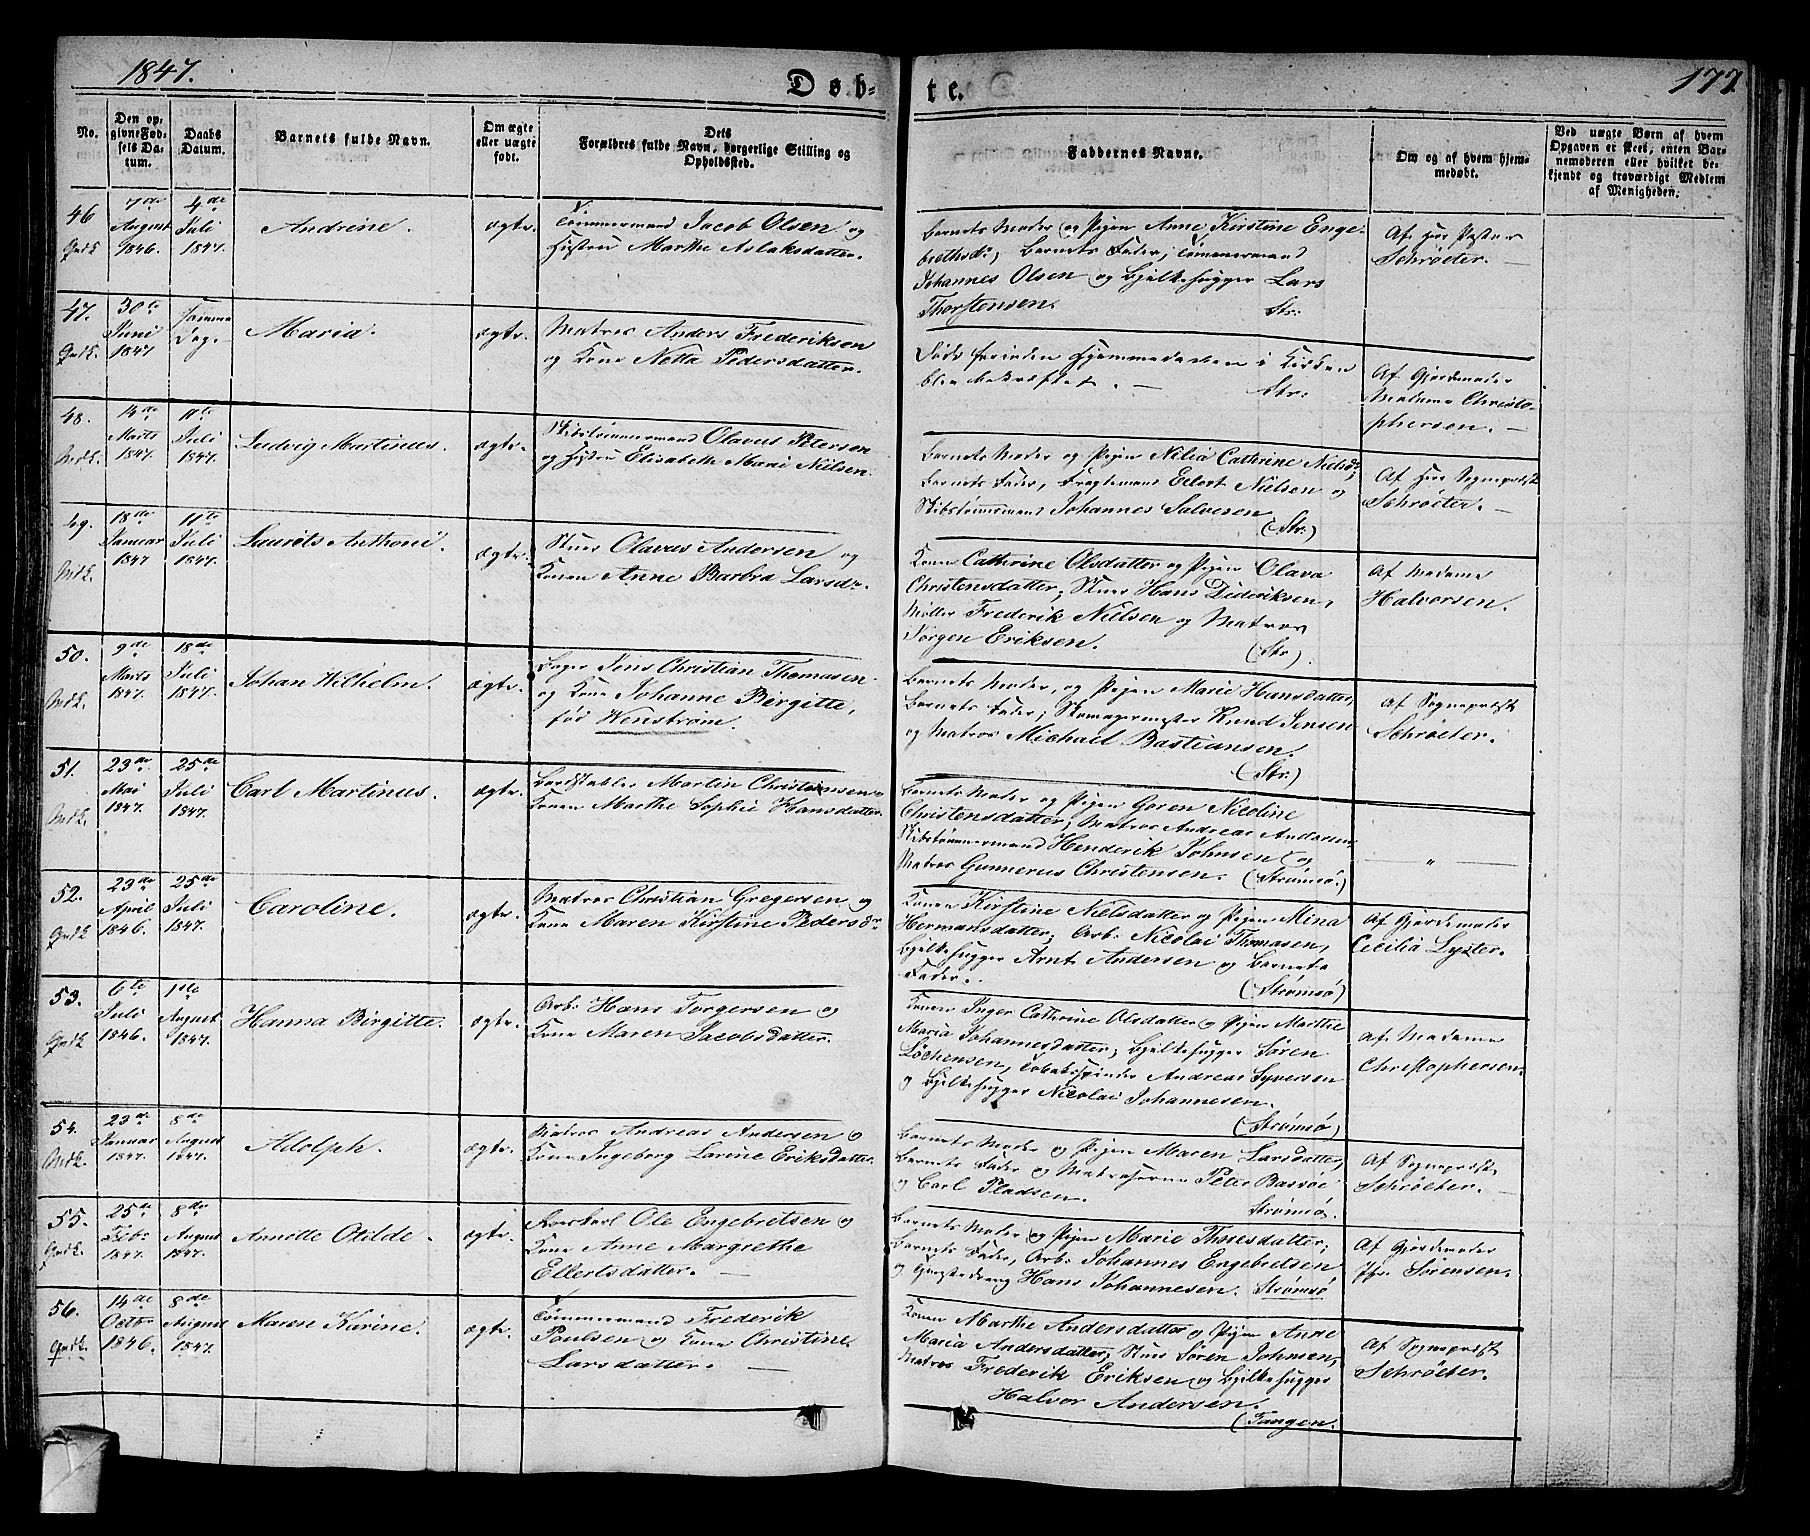 1847.
Døb-
te.
177
No.
Den op-
givne Fød-
sels Da-
tum.
Daabs
Datum.
Barnets fulde Navn.
Om ægte
eller uægte
født.
Dets
Forældres fulde Navn, borgerlige Stilling og
Opholdssted.
Faddernes Navne.
Om og af hvem hjem-
medøbt.
Ved uægte Børn af hvem
Opgaven er skeet, enten Bar-
nemoderen eller hvilket be-
kjendt og troværdigt Medlem
af Menigheden.
46
7de
August
1846.
4de
Juli
1847.
Andrine.
ægte.
Tømmermand Jacob Olsen og
Hustru Marthe Aslaksdatter.
Barnets Moder og Pigen Anne Kirstine Enge-
brethsdr; Barnets Fader; Tømmermand
Johannes Olsen og Bjelkehugger Lars
Thorstensen. Str:
Af Hr Pastor
Schrøeter. —
47.
30te
Juni
1847
Samme
Dag.
Maria.
ægte.
Matros Anders Frederiksen
og Kone Netta Pedersdatter.
Døde forinden Hjemmedaaben i Kirken
blev bekræftet. — Str:
Af Gjordemoder
Madame Christo-
phersen. —
48.
14de
Marts
1847.
11te
Juli
1847.
Ludvig Martinus.
ægte.
Skibstømmermand Olavus Petersen
og Hustru Elisabeth Marie Nilsen.
Barnets Moder og Pigen Nilia Cathrine Nielsd:
Barnets Fader, Fragtemand Eilert Nielsen og
Skibstømmermand Johannes Salvesen (Str:)
Af Herr Sognepræst
Schrøeter. —
49.
18de
Januar
1847
11te
Juli
1847.
Laurits Anthoni.
ægte.
Stuer Olaves Andersen og
Konen Anne Barbra Larsdr.
Kone Cathrine Olsdatter og Pigen Olava
Christensdatter; Stuer Hans Dideriksen,
Møller Frederik Nielsen og Matros
Jørgen Eriksen. (Str).
Af Madame
Halvorsen.
50.
9de
Marts
1847.
18de
Juli
1847.
Johan Wilhelm.
ægte.
Bager Jens Christian Thomasen
og Kone Johanne Birgitte,
fød Wenstrøm.
Barnets Moder, og Pigen Marie Hansdatter,
Barnets Fader; Skomagermester Knud Jensen
og Matros Michael Bastiansen.
(Str)
Af Sognepræst
Schrøeter.
51.
23de
Mai
1847.
25de
Juli
1847.
Carl Martinus.
ægte.
Bordstabler Martin Christensen og
Kone Marthe Sophie Hansdatter
Barnets Moder og Pigen Goren Nicoline
Christensdatter; Matros Andreas Andersen,
Skibstømmermand Henderik Johnsen og
Matros Gunnerus Christensen. (Strømsø.)
— „ —
52.
23de
April
1846.
25de
Juli
1847.
Caroline.
ægte.
Matros Christian Gregersen og
Kone Maren Kirstine Pedersdr
Konen Kirstine Nielsdatter og Pigen Mina
Hermansdatter; Arb: Nicolai Thomasen,
Bjelkehugger Arnt Andersen og Barnets
Fader. (Strømsø)
Af Gjordemoder
Cecilia Lyster.
53.
6te
Juli
1846.
1ste
August
1847.
Hanna Birgitte.
ægte.
Arb: Hans Torgersen og
Kone Maren Jacobsdatter.
Konen Inger Cathrine Olsdatter og Pigen Marthe
Maria Johannesdatter; Bjelkehugger Søren
Lochensen, Tobakspinder Andreas Syversen
og Bjelkehugger Nicolai Johannesen.
(Strømsø)
Af Madame
Christophersen.
54.
23de
Januar
1847.
8de
August
1847.
Adolph.
ægte.
Matros Andreas Andersen og
Kone Ingeborg Larine Eriksdatter.
Barnets Moder og Pigen Maren Larsdatter,
Barnets Fader og Matroserne Peter Bassøe
og Carl Pladsen. Strømsø.
Af Sognepræst
Schrøeter. —
55.
25de
Feb:
1847.
8de
August
1847.
Annette Otilde.
ægte.
Roerkarl Ole Engebretsen og
Kone Anne Margrethe
Ellertsdatter. —
Barnets Moder og Pigen Marie Thoresdatter;
Barnets Fader, Arb: Johannes Engebretsen
og Hans Johannesen. Strømsø
Af Gjordemoder
Sørensen.
56.
14de
Octb:
1846.
8de
August
1847.
Maren Karine.
ægte.
Tømmermand Frederik
Poulsen og Kone Christine
Larsdatter. —
Konen Marthe Andersdatter og Pigen Anne
Maria Andersdatter; Stuer Søren Johnsen,
Matros Frederik Eriksen og Bjelkehugger
Halvor Andersen.
(Tangen.
Af Sognepræst
Schrøeter.